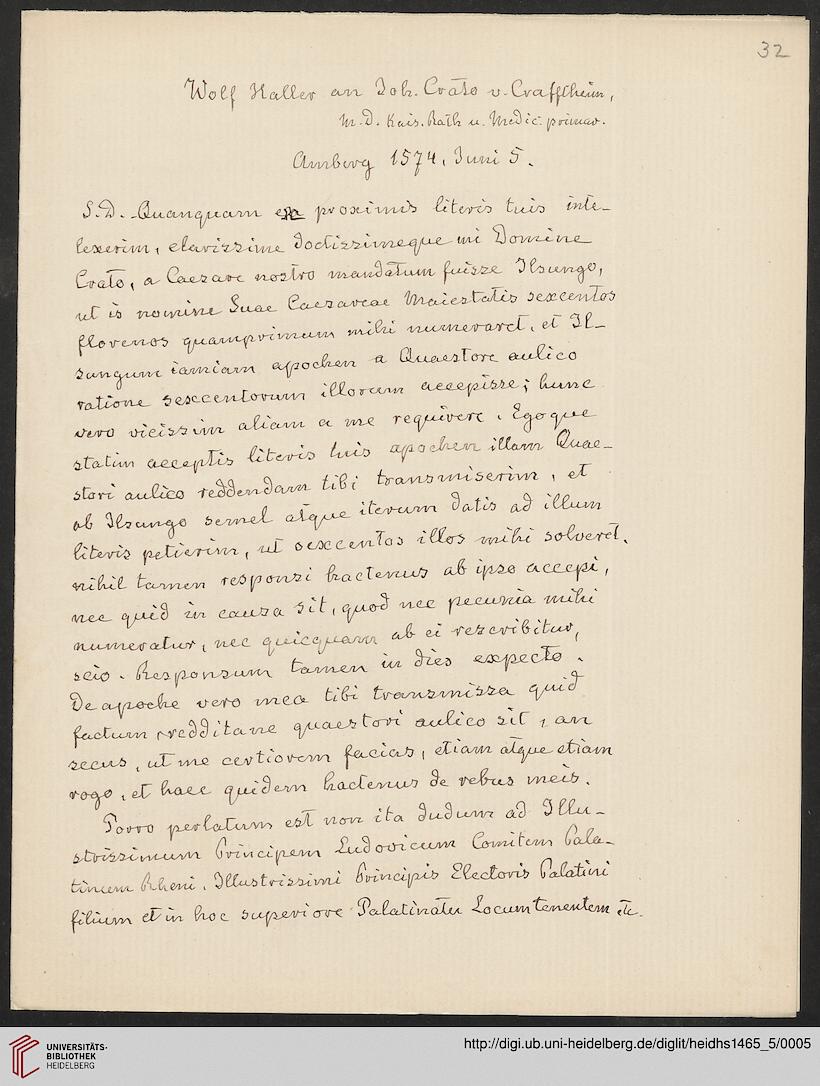 32
Wolf Haller an Joh. Crato v. Crafftheim,
M. D. Kais. Rath u. Medic. primar.
Amberg 1574, Juni 5.
S. D. Quanquam ex proximis literis tuis inte-
lexerim, clarissime doctissimeque mi Domine
Crato, a Caesare nostro mandatum fuisse Ilsungo,
ut is nomine Suae Caesareae Maiestatis sexcentos
florenos quamprimum mihi numeraret, et Il-
sungum iamiam apochen a Quaestore aulico
ratione sexcentorum illorum accepisse; hunc
vero vicissim aliam a me requirere. Egoque
statim acceptis literis tuis apochen illam Quae-
stori aulico reddendam tibi transmiserim, et
ab Ilsungo semel atque iterum datis ad illum
literis petierim, ut sexcentos illos mihi solveret,
nihil tamen responsi hactenus ab ipso accepi,
nec quid in causa sit, quod nec pecunia mihi
numeratur, nec quicquam ab ei rescribitur,
scio. Responsum tamen in dies expecto.
De apoche vero mea tibi transmissa quid
factum, redditane quaestori aulico sit, an
secus, ut me certiorem facias, etiam atque etiam
rogo, et haec quidem hactenus de rebus meis.
Porro perlatum est non ita dudum ad Illu-
strissimum Principem Ludovicum Comitem Pala-
tinum Rheni, Illustrissimi Principis Electoris Palatini
filium et in hoc superiore Palatinatu Locumtenentem etc.
UNIVERSITÄTS-
BIBLIOTHEK
HEIDELBERG
http://digi.ub.uni-heidelberg.de/diglit/heidhs1465_5/0005